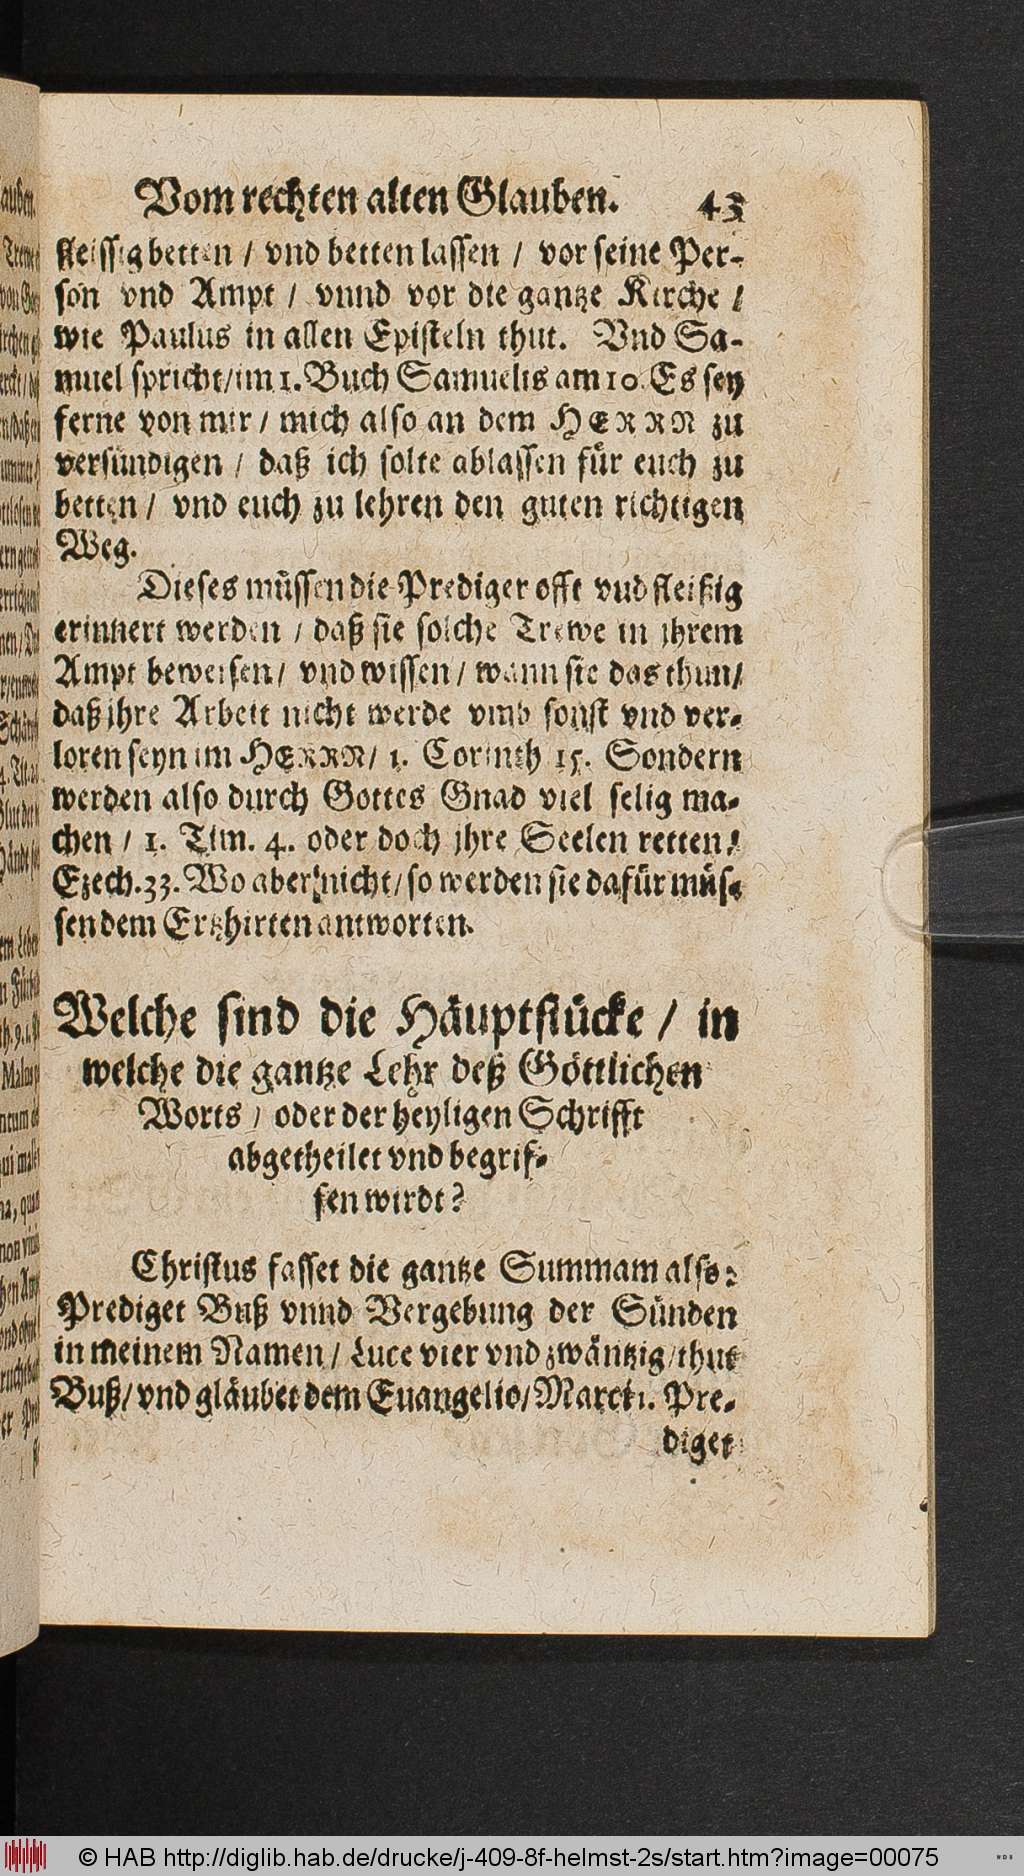 Vom rechten alten Glauben. 43
fleissig betten / vnd betten lassen / vor seine Per-
son vnd Ampt / vnnd vor die gantze Kirche /
wie Paulus in allen Episteln thut. Vnd Sa-
muel spricht / im 1. Buch Samuelis am 10. Es sey
ferne von mir / mich also an dem HERRN zu
versündigen / daß ich solte ablassen für euch zu
betten / vnd euch zu lehren den guten richtigen
Weg.
Dieses müssen die Prediger offt vnd fleißig
erinnert werden / daß sie solche Trewe in jhrem
Ampt beweisen / vnd wissen / wann sie das thun /
daß jhre Arbeit nicht werde vmb sonst vnd ver-
loren seyn im HERRN / 1. Corinth 15. Sondern
werden also durch Gottes Gnad viel selig ma-
chen / 1. Tim. 4. oder doch jhre Seelen retten /
Ezech. 33. Wo aber nicht / so werden sie dafür müs-
sen dem Ertzhirten antworten.
Welche sind die Häuptstücke / in
welche die gantze Lehr deß Göttlichen
Worts / oder der heyligen Schrifft
abgetheilet vnd begrif-
fen wirdt?
Christus fasset die gantze Summam also:
Prediget Buß vnnd Vergebung der Sünden
in meinem Namen / Luce vier vnd zwäntzig / thut
Buß / vnd gläubet dem Euangelio / Marci 1. Pre-
diget
© HAB http://diglib.hab.de/drucke/j-409-8f-helmst-2s/start.htm?image=00075